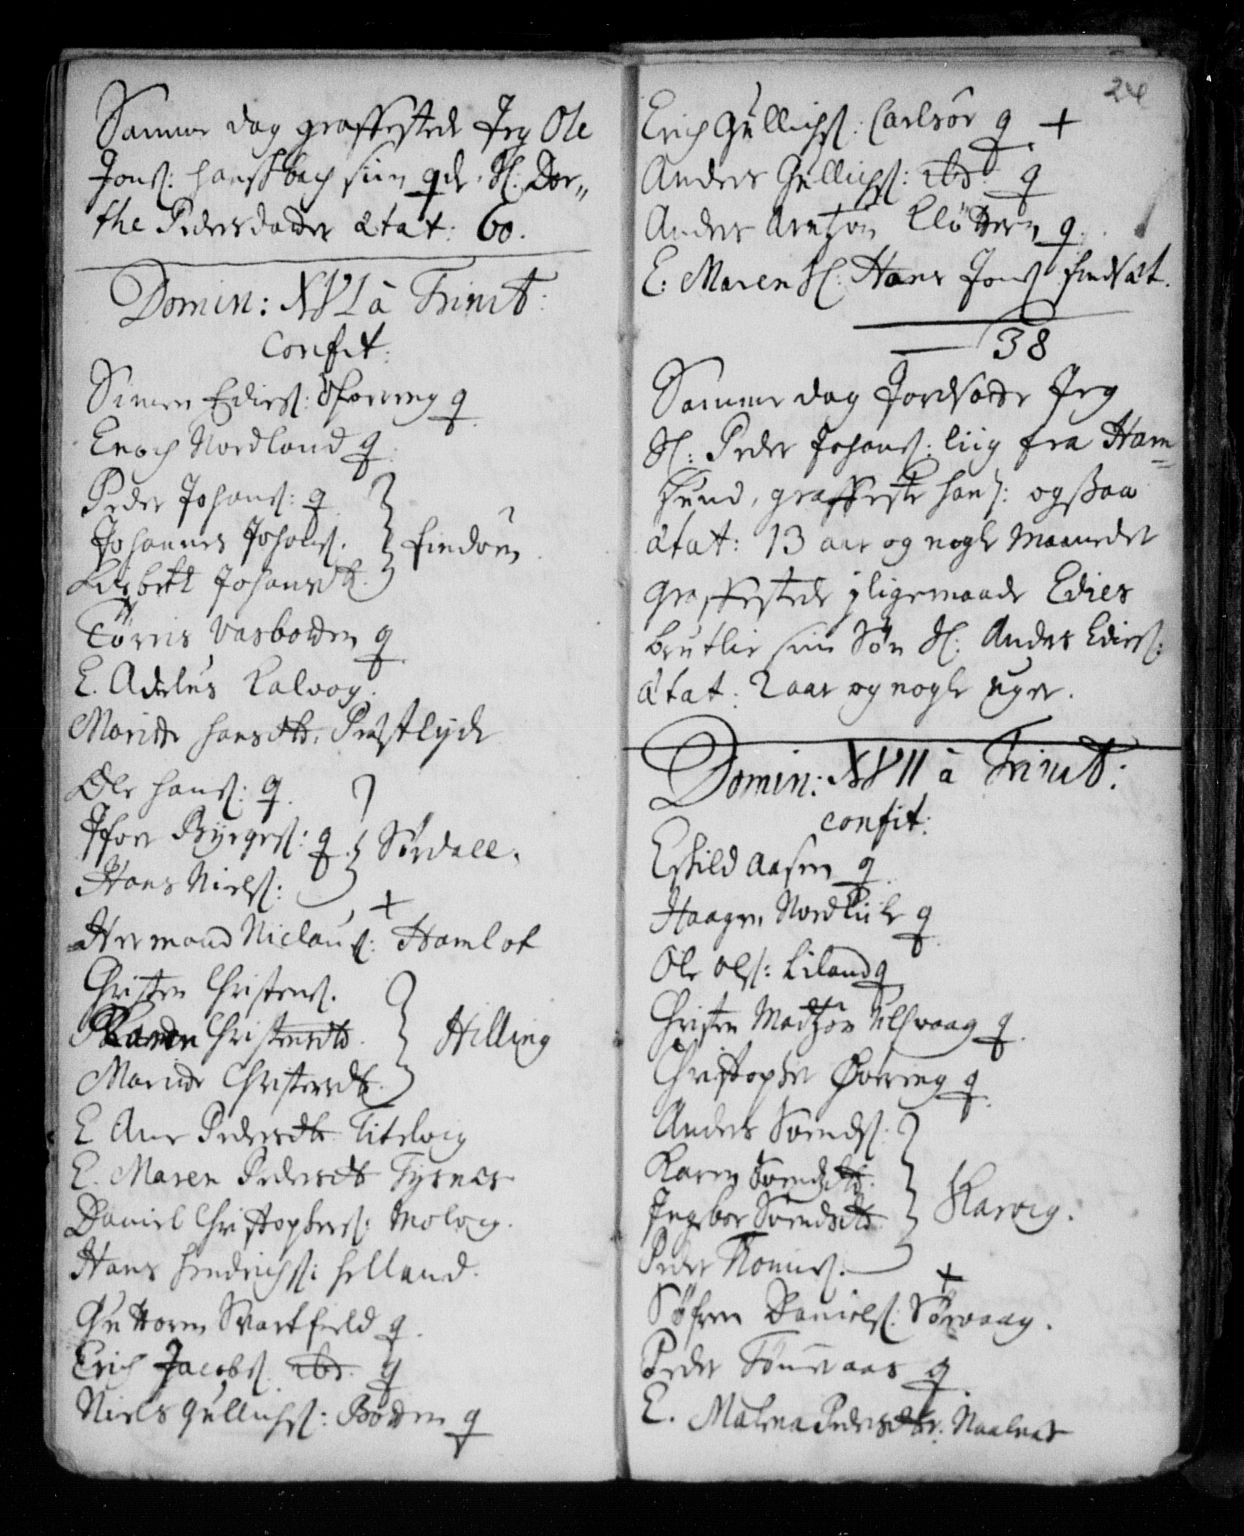 Samme dag graffestede Jeg Ole
Jons: hansbach sin qde. Sl: Dor„
the Pedersdatter ætat: 60.
Domin: XVI à Trinit:
Confit:
Simen Edies: Skorring q
Enoch Nordland q
Peder Johans: q
Johannes Johans.
Lisbeth Johansdtr. } findöen
Törris Vasbotten q
E. Adelus Kalvog.
Maritte hansdtr. Præstlijde
Ole hans: q.
Ifver Byrges: q. } Sördall.
Hans Niels:
+
Hermand Niclaus: Hamlot
Christen Christens.
Karen Christensdtr. } Hilling
Marite Christensdtr.
E Ane Pedersdtr Titelvig
E. Maren Pedersdtr Tysnes
Daniel Christophers: Molvig.
Hans Hendrichs: Helland.
Guttorm Svartfield q.
Erich Jacobs. ibd. q
Niels Gullichs: Botten q
24
Erich Gullichs: Carlsör q +
Anders Gullichs: ibd. q
Anders Arntzön Klötteren q.
E: Maren Sl. Hans Jons: findsæt.
38
Samme dag Jordsatte Jeg
Sl: Peder Johans: liig fra Ham=
Sund, graffeste hans: ogsaa
ætat: 13 aar og nogle Maaneder
graffestede jligemaade Edies
Brutlie sin Sön Sl: Anders Edies:
ætat: 2 aar og nogle uger.
Domin: XVII à Trinit:
confit:
Eskild Aasen q.
Haagen Nordkiile q
Ole Ols: Liland q
Christen Madtzön Ulsvaag q.
Christopher Övering q.
Anders Svends:
Karen Svendsdtr.
Ingebor Svendsdtr. } Karvig.
Peder Tömes.
+
Söfren Daniels: Sörvaag.
Peder Tönnesaas q.
E. Malena Pedersdtr. Naalnæs